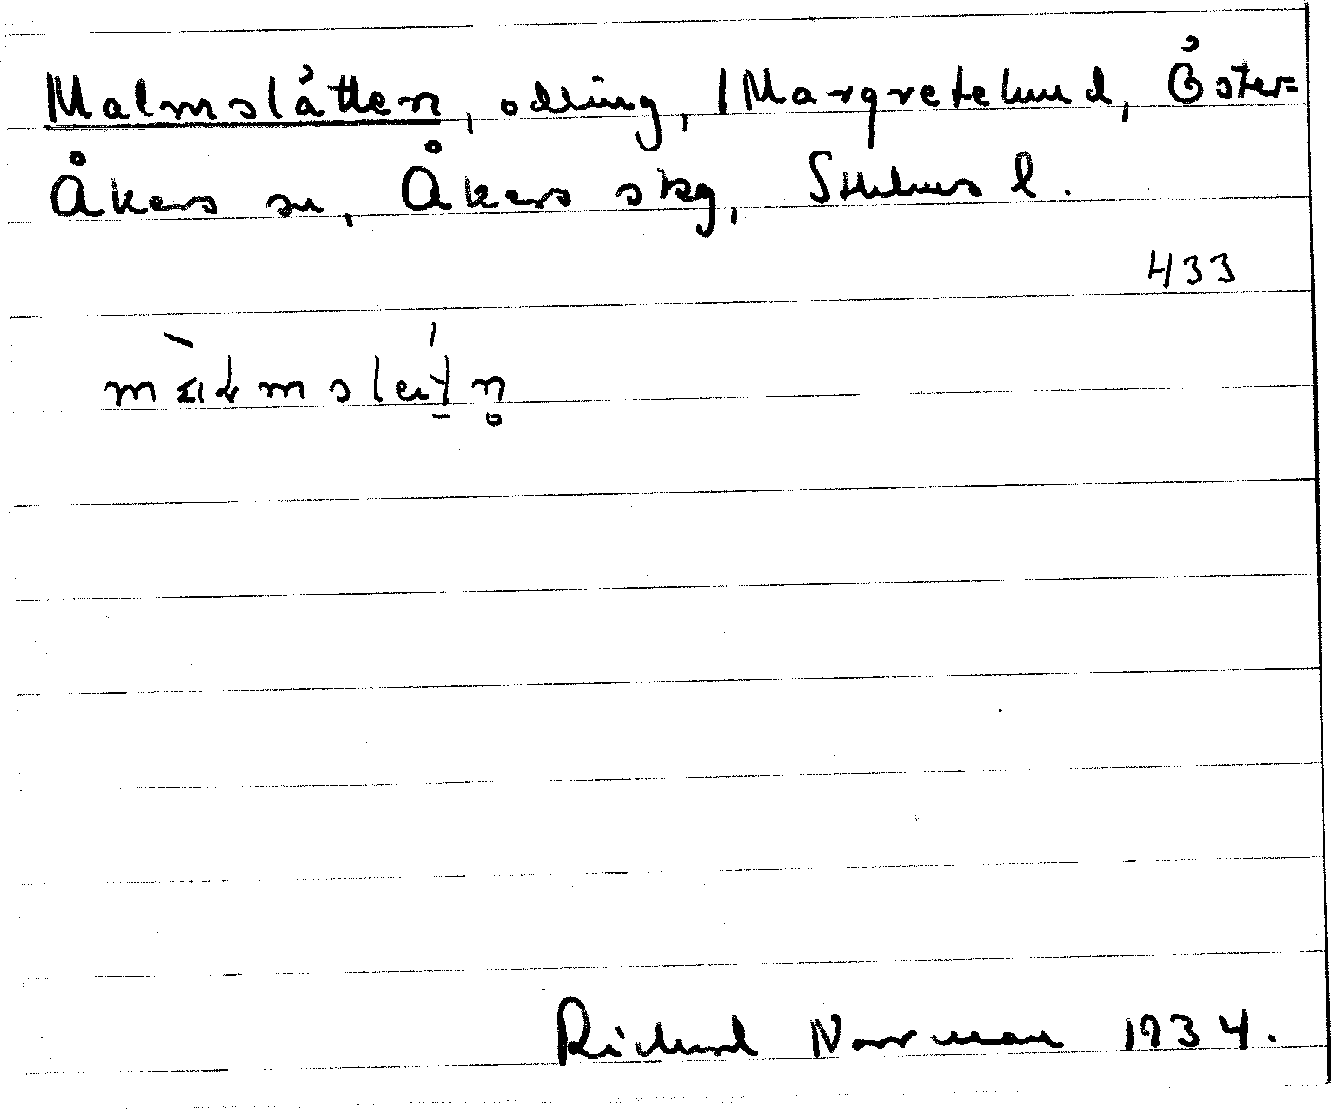 Malmslätten, odling, 1 Margretelund, Öster=
Åkers sn, Åkers skg, Sthlms l.
433
Richard Norrman 1934.